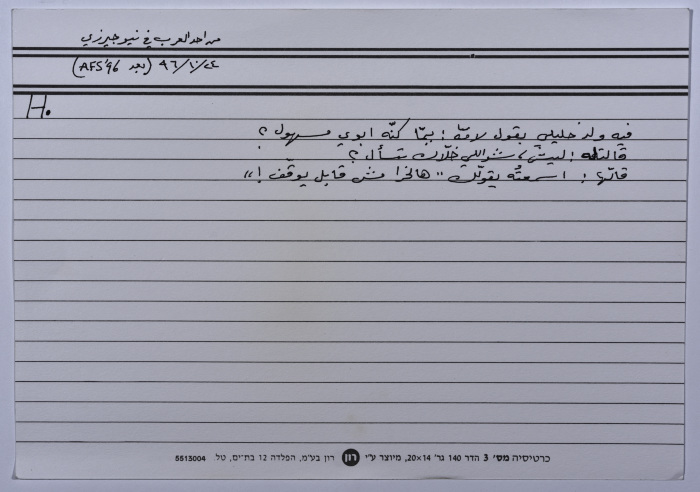 من احد العرب في نيو جيرزي
٩٦/١٠/٢٤ (بعد AFS '96)
H.
فيه ولد خليلي بقول لامّه: يمّا كنّه ابوي مسهول؟
قالتله: ليش، شو اللي خلّاك تسأل؟
قالّها: اسمعتُه يقولّك "هالخرا مش قابل يوقّف!"
כרטיסיה מס' 3 הדר 140 גר' 20×14, מיוצר ע"י רון רון בע"מ, הפלדה 12 בת־ים, טל. 5513004